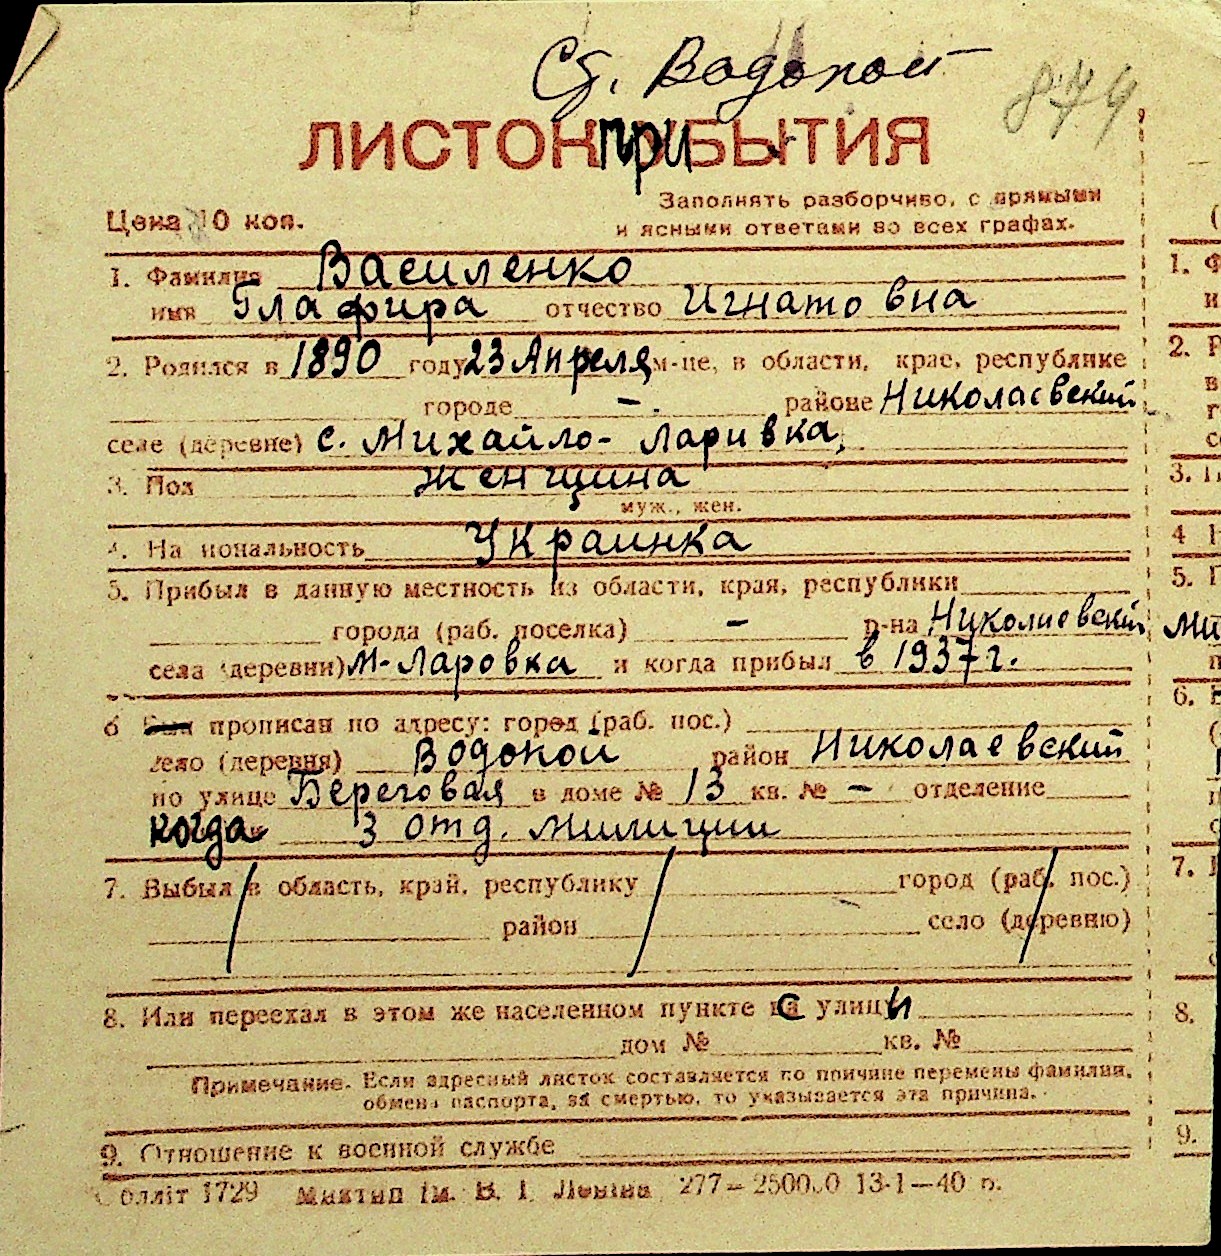 Ст. Водопой
874
ЛИСТОК ПРИБЫТИЯ
Заполнять разборчиво, с прямыми
Цена 10 коп.
и ясными ответами во всех графах.
1. Фамилия Василенко
имя Глафира отчество Игнатовна
2. Родился в 1890 году 23 Апреля м-це, в области, крае, республике
городе -. районе Николаевский
селе (деревне) с. Михайло-Ларивка,
3. Пол женщина
муж., жен.
4. Национальность Украинка
5. Прибыл в данную местность из области, края, республики
города (раб. поселка) - р-на Николиевский
села (деревни) М-Ларовка и когда прибыл в 1937 г.
6 Был прописан по адресу: город (раб. пос.)
село (деревня) Водопой район Николаевский
по улице Береговая в доме № 13 кв. № - отделение
когда 3 отд. милиции
7. Выбыл в область, край, республику город (раб. пос.)
район село (деревню)
8. Или переехал в этом же населенном пункте с улицы
дом № кв. №
Примечание. Если адресный листок составляется по причине перемены фамилии,
обмена паспорта, за смертью, то указывается эта причина.
9. Отношение к военной службе
Облліт 1729 Миктип ім. В. І. Леніна 277-25000 13-1-40 р.
1. Ф
и
2. Р
в
г
с
3. П
4 Н
5. П
Ми
п
6. Б
7.
8.
9.